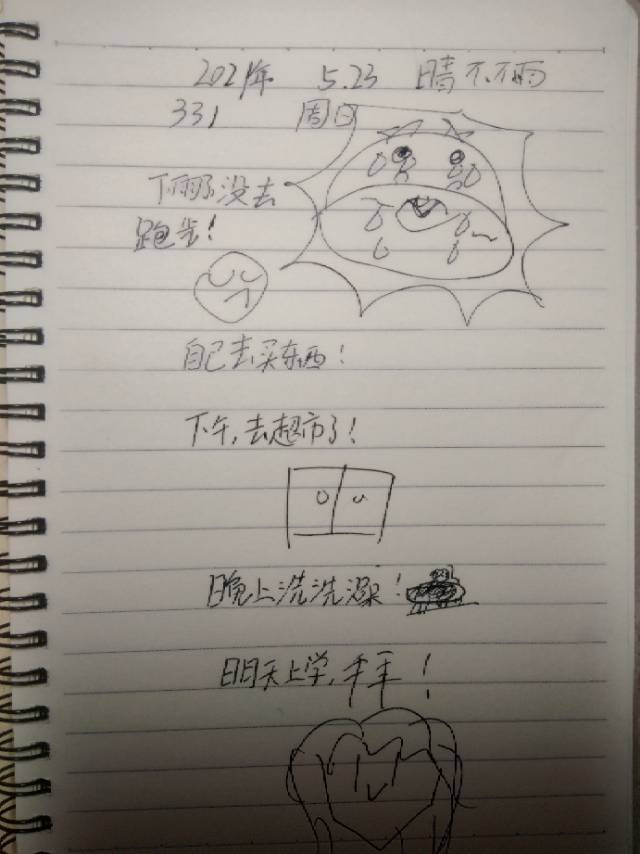 2021年 5.23 晴不不雨
331 周日
下雨了没去
跑步!
自己去买东西!
下午,去超市了!
晚上洗洗澡!
明天上学,手手!